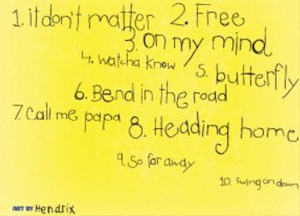 1. it don't matter
2. Free
3. on my mind
4. watcha know
5. butterfly
6. Bend in the road
7. Call me papa
8. Heading home
9. So far away
10. Swing on down
ART BY Hendrix